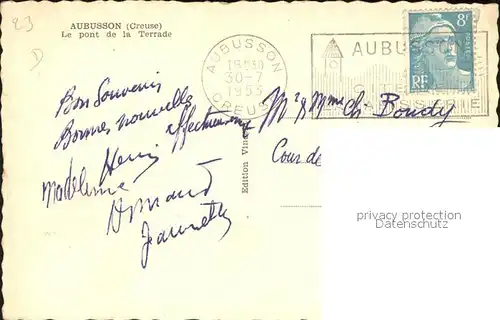 23
D
AUBUSSON (Creuse)
Le pont de la Terrade
AUBUSSON
18H30
30-7
1953
CREUSE
AUBUSSON
8F
POSTES
RF
Bon Souvenir
Bonnes nouvelles
affectueuse
Henri
Madeleine
Armand
Jeannette
Edition Vin
Mr & Mme Ch. Boudy
Cours de
privacy protection
Datenschutz